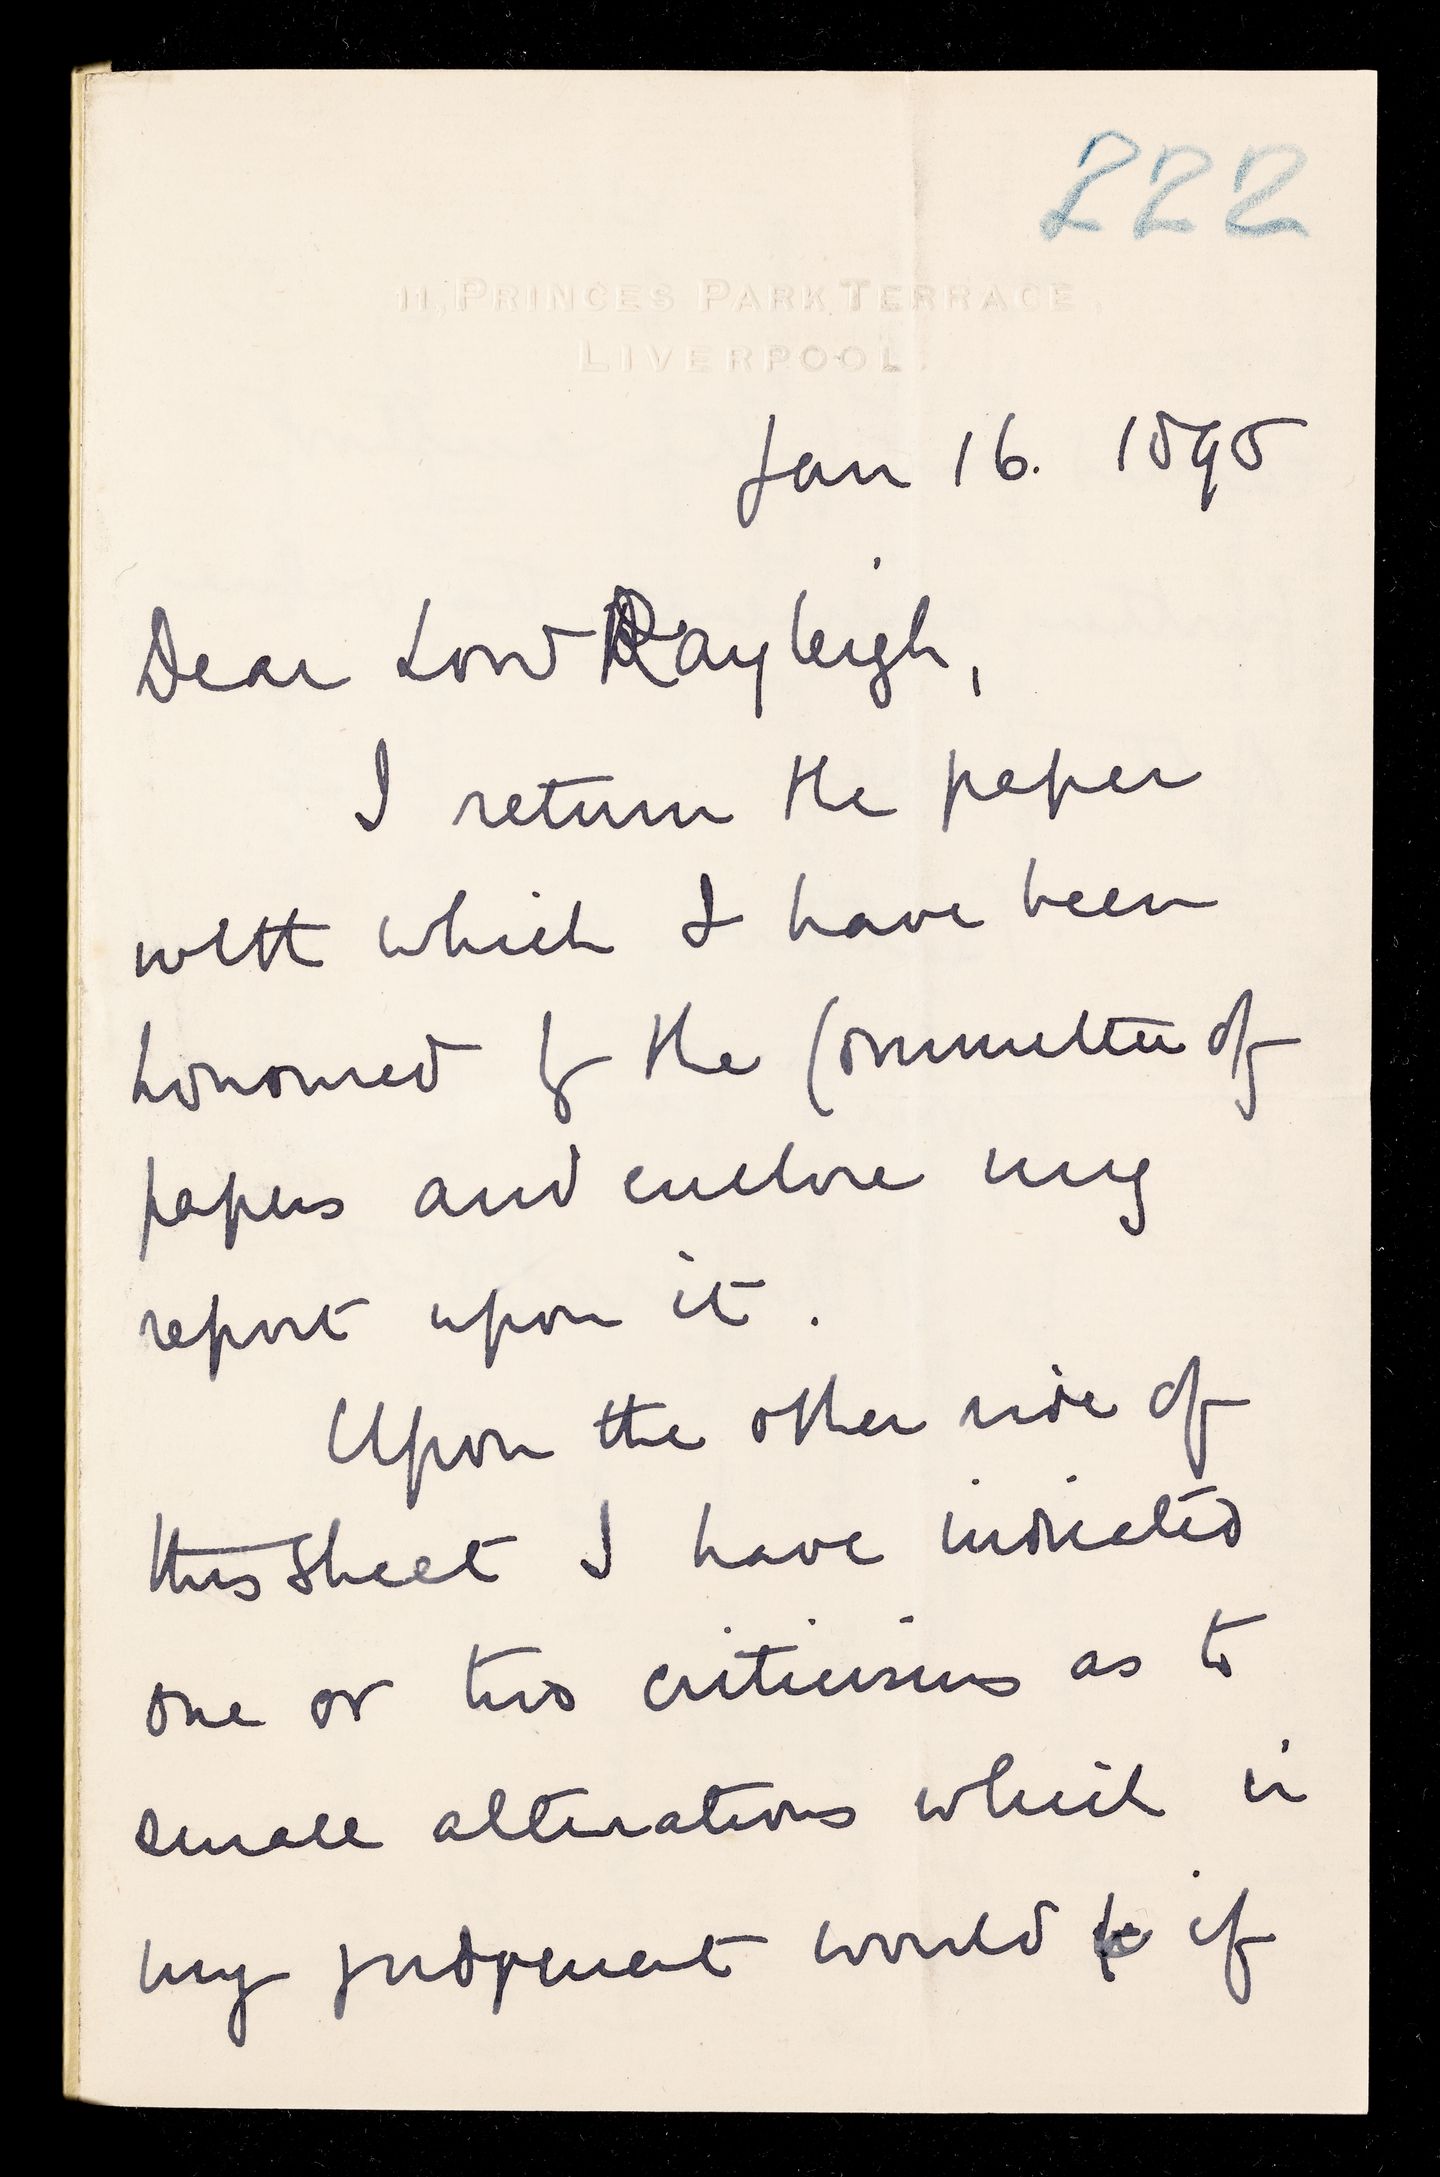 222
11, PRINCES PARK TERRACE,
LIVERPOOL.
Jan 16. 1895
Dear Lord Rayleigh,
I return the paper
with which I have been
honoured by the Committee of
papers and enclose my
report upon it.
Upon the other side of
this sheet I have indicated
one or two criticisms as to
small alterations which in
my judgment would be if